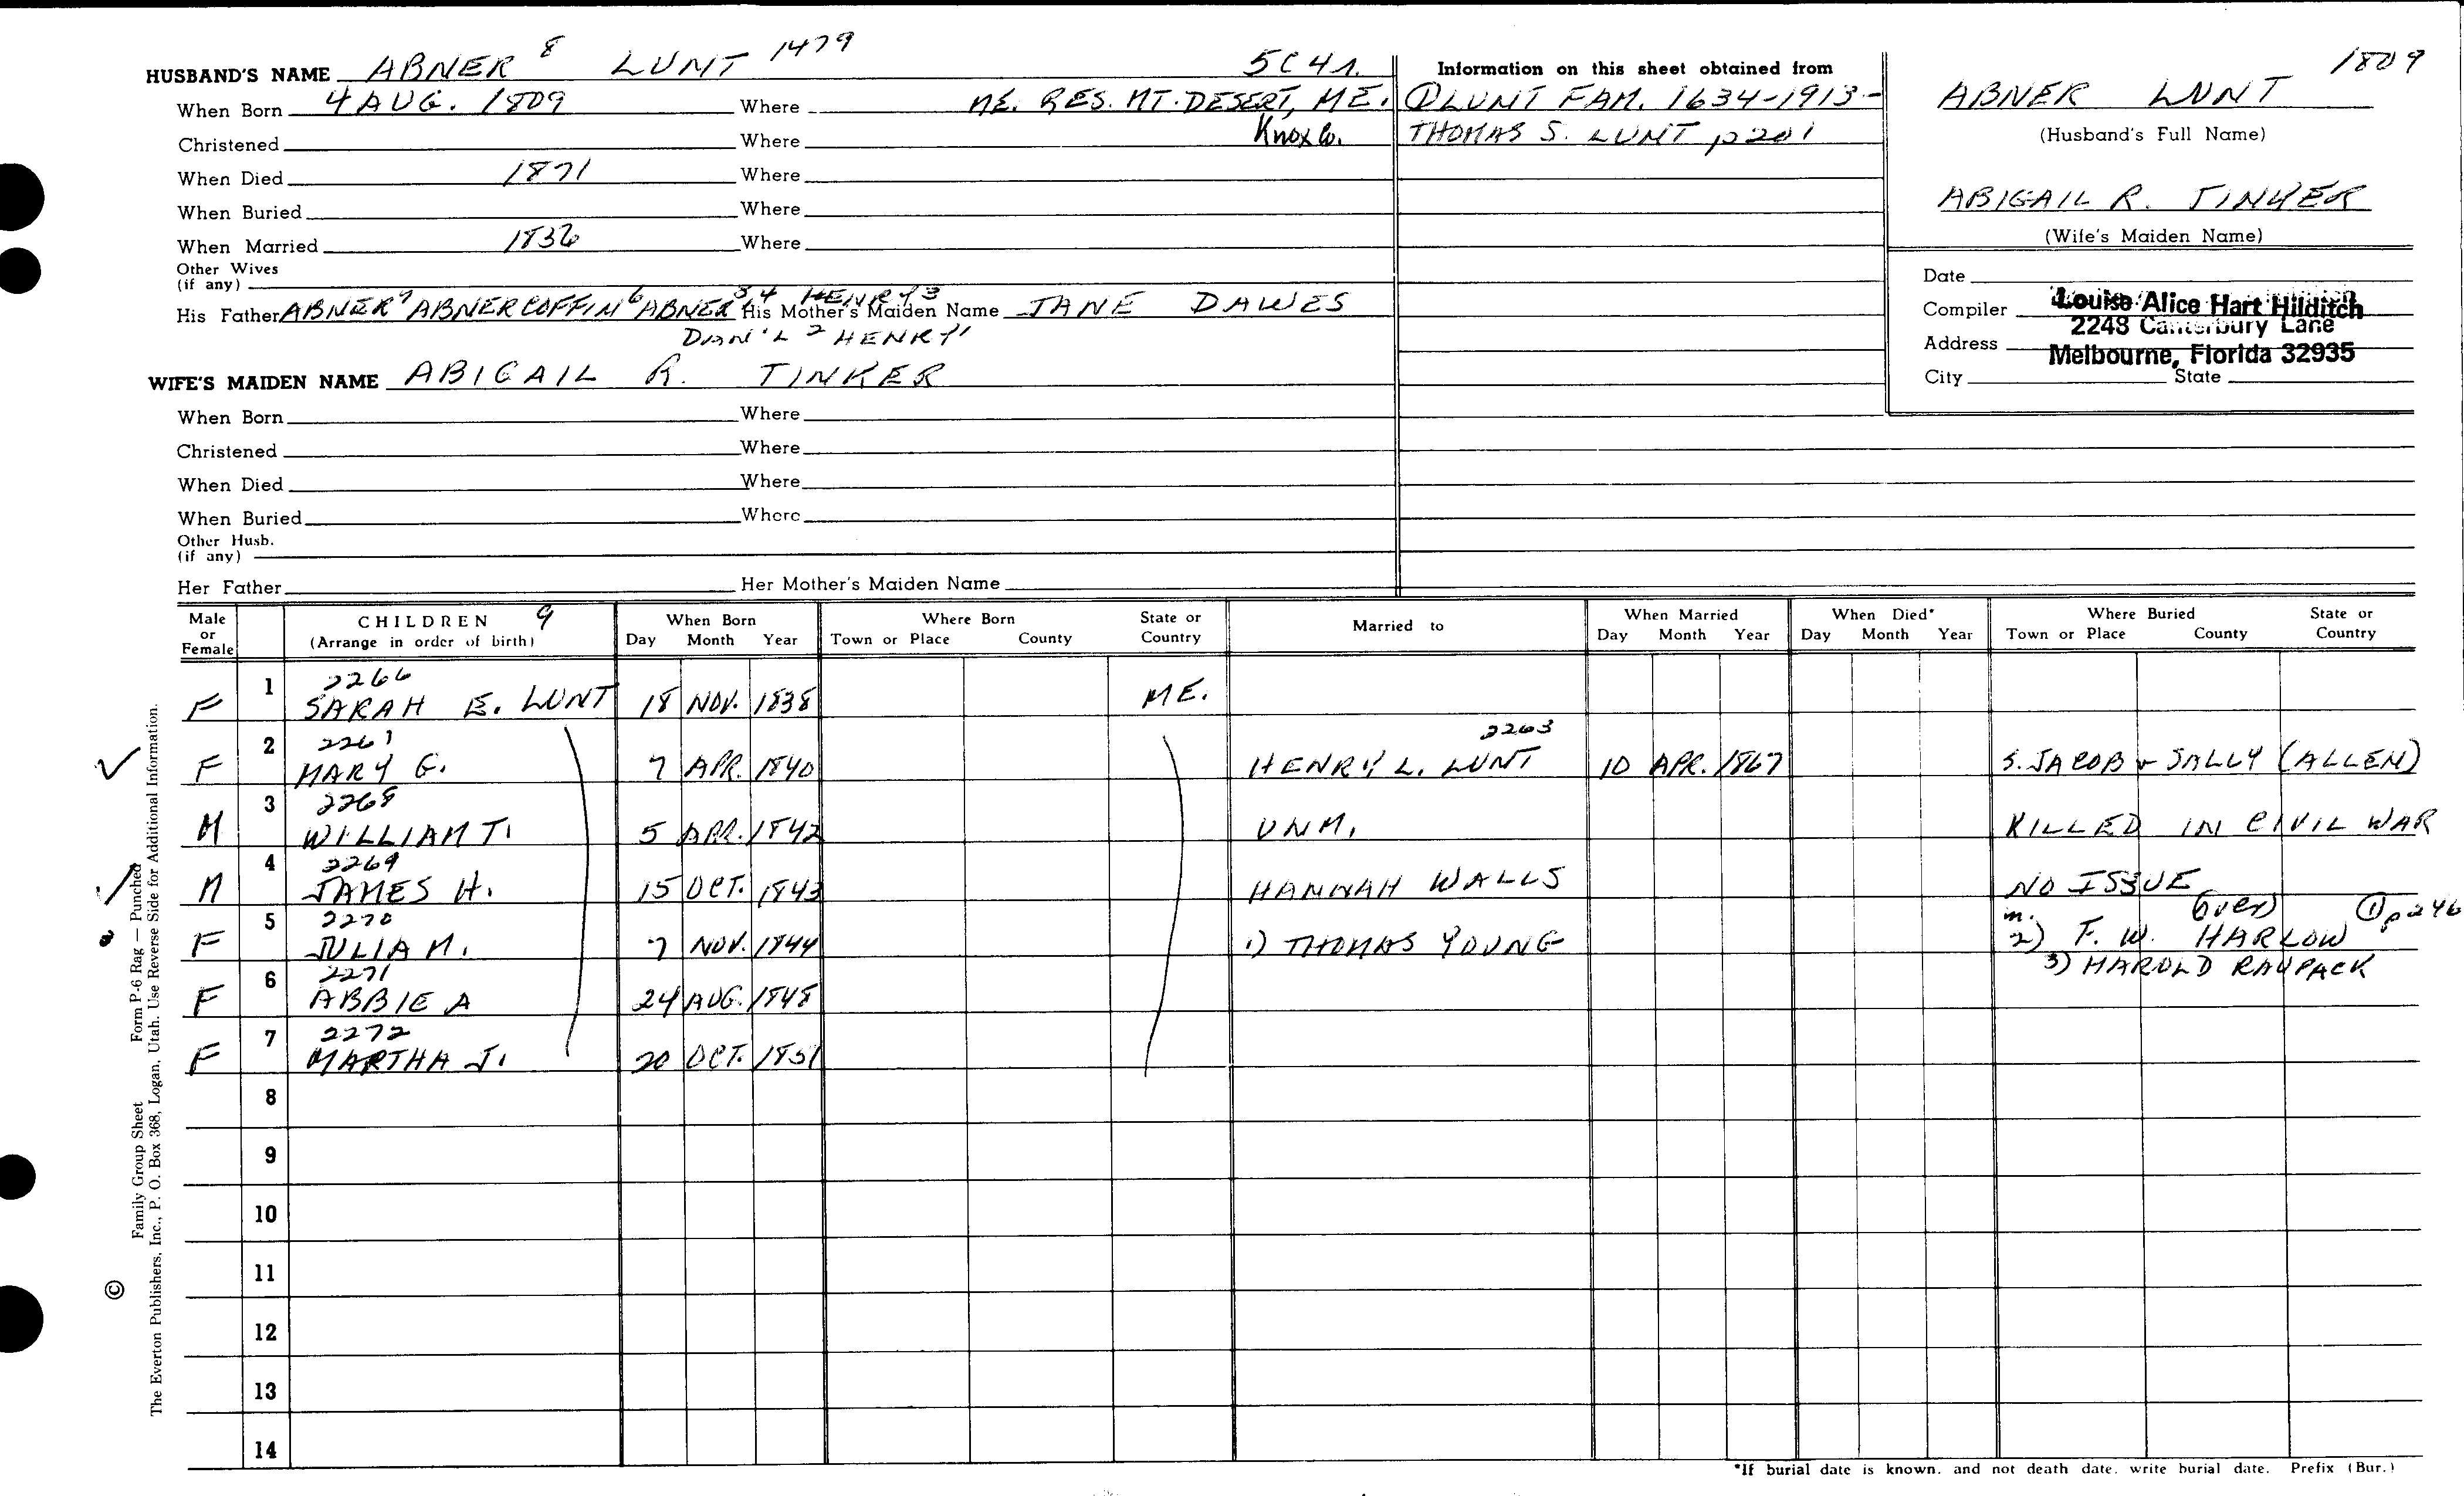 HUSBAND'S NAME ABNER 8 LUNT 1479 5C4A.
When Born 4 AUG. 1809 Where ME. RES. MT. DESERT, ME.
Christened Where Knox Co.
When Died 1871 Where
When Buried Where
When Married 1836 Where
Other Wives
(if any)
His Father ABNER 7 ABNER COFFIN 6 ABNER 5 4 HENRY 3 His Mother's Maiden Name JANE DAWES
DAN'L 2 HENRY 1
WIFE'S MAIDEN NAME ABIGAIL R. TINKER
When Born Where
Christened Where
When Died Where
When Buried Where
Other Husb.
(if any)
Her Father Her Mother's Maiden Name
Information on this sheet obtained from
① LUNT FAM. 1634-1913-
THOMAS S. LUNT p201
1809
ABNER LUNT
(Husband's Full Name)
ABIGAIL R. TINKER
(Wife's Maiden Name)
Date
Compiler Louise Alice Hart Hilditch
2248 Canterbury Lane
Address
Melbourne, Florida 32935
City State
Male or Female CHILDREN 9 (Arrange in order of birth) When Born Day Month Year Where Born Town or Place County State or Country Married to When Married Day Month Year When Died* Day Month Year Where Buried Town or Place County State or Country
1 2266
F SARAH E. LUNT 18 NOV. 1838 ME.
2 2267 2263
F MARY G. 7 APR. 1840 HENRY L. LUNT 10 APR. 1867 S. JACOB + SALLY (ALLEN)
3 2268
M WILLIAM T. 5 APR. 1842 UNM. KILLED IN CIVIL WAR
4 2269
M JAMES H. 15 OCT. 1843 HANNAH WALLS NO ISSUE
5 2270 m. (over) ① p246
F JULIA M. 7 NOV. 1844 1) THOMAS YOUNG 2) F. W. HARLOW
6 2271 3) HAROLD RAUPACK
F ABBIE A 24 AUG. 1848
7 2272
F MARTHA J. 20 OCT. 1851
8
9
10
11
12
13
14
*If burial date is known, and not death date, write burial date. Prefix (Bur.)
© Family Group Sheet Form P-6 Rag — Punched
The Everton Publishers, Inc., P. O. Box 368, Logan, Utah. Use Reverse Side for Additional Information.